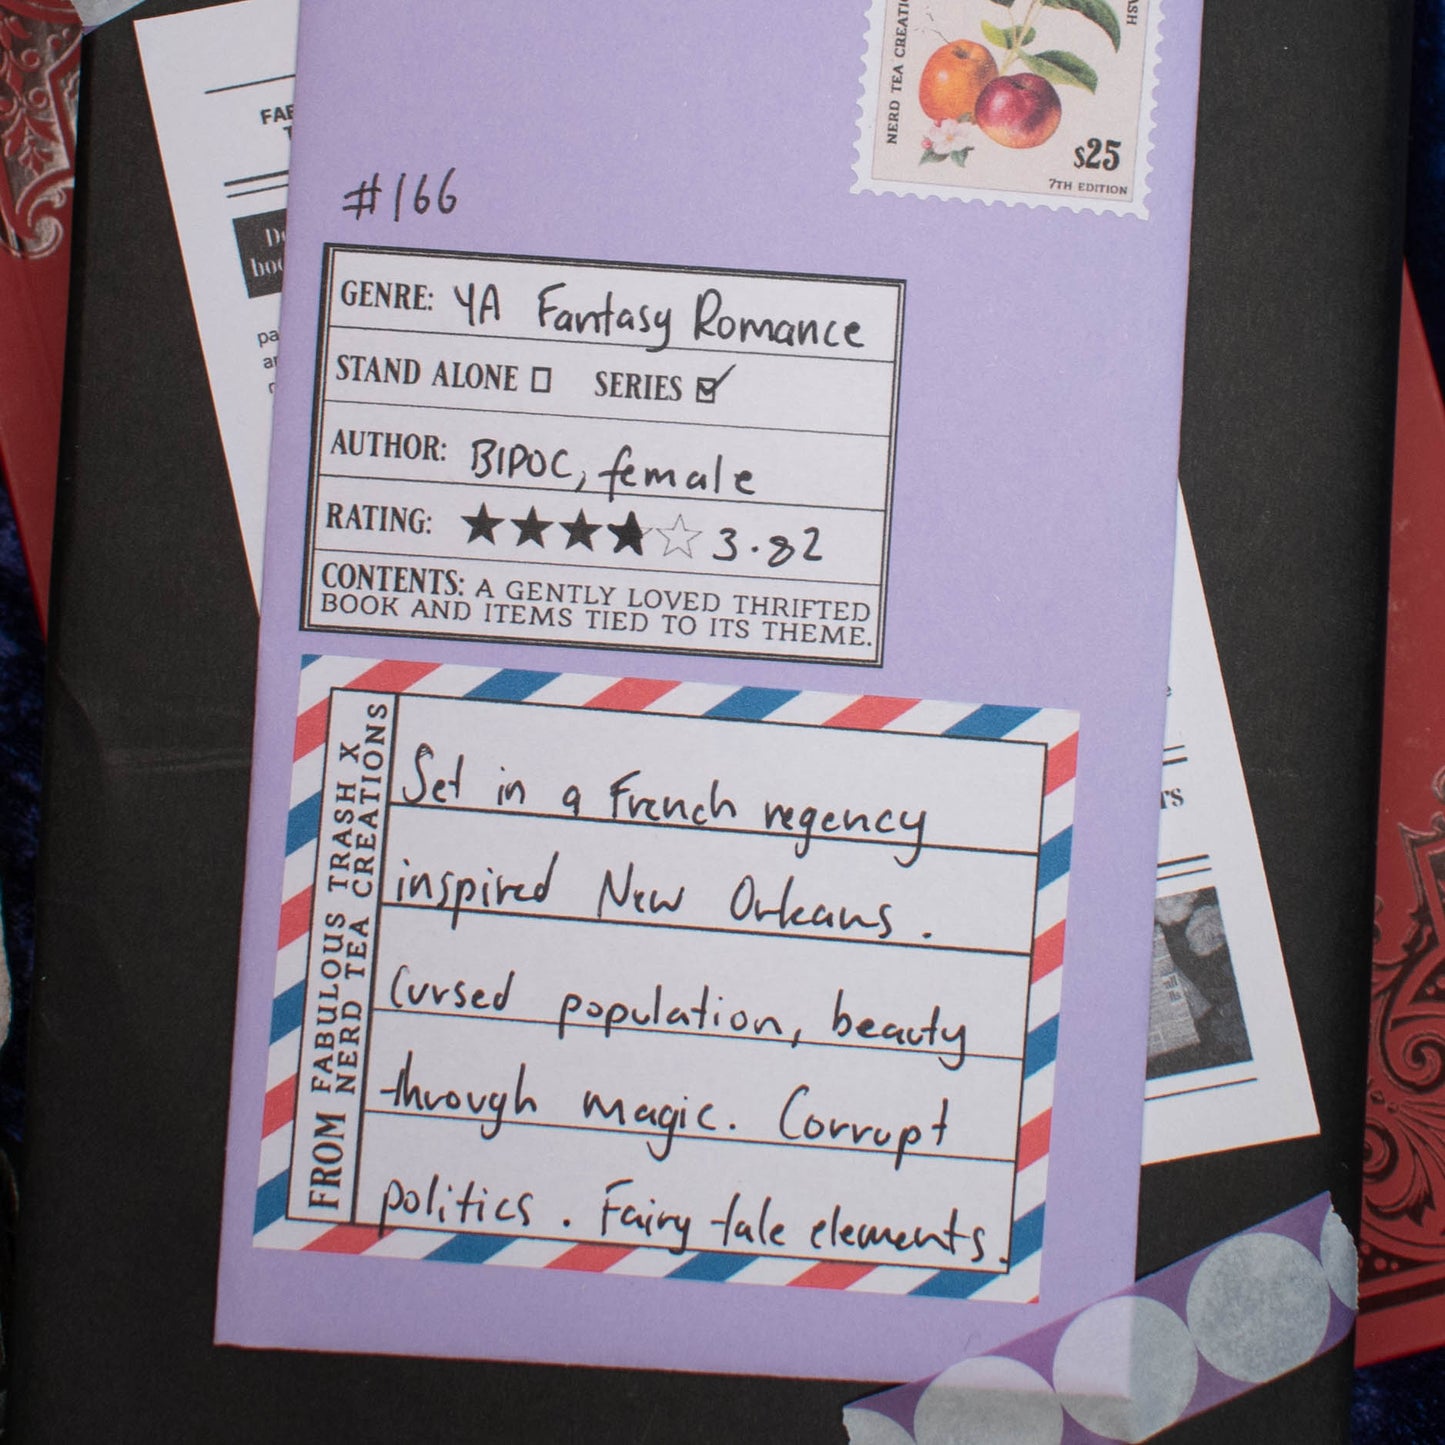 NERD TEA CREATI
ASH
$25
7TH EDITION
#166
GENRE: YA Fantasy Romance
STAND ALONE ☐ SERIES ☑
AUTHOR: BIPOC, female
RATING: ★★★★☆ 3.82
CONTENTS: A GENTLY LOVED THRIFTED
BOOK AND ITEMS TIED TO ITS THEME.
FROM FABULOUS TRASH X
NERD TEA CREATIONS
Set in a French regency
inspired New Orleans.
Cursed population, beauty
through magic. Corrupt
politics. Fairy tale elements.